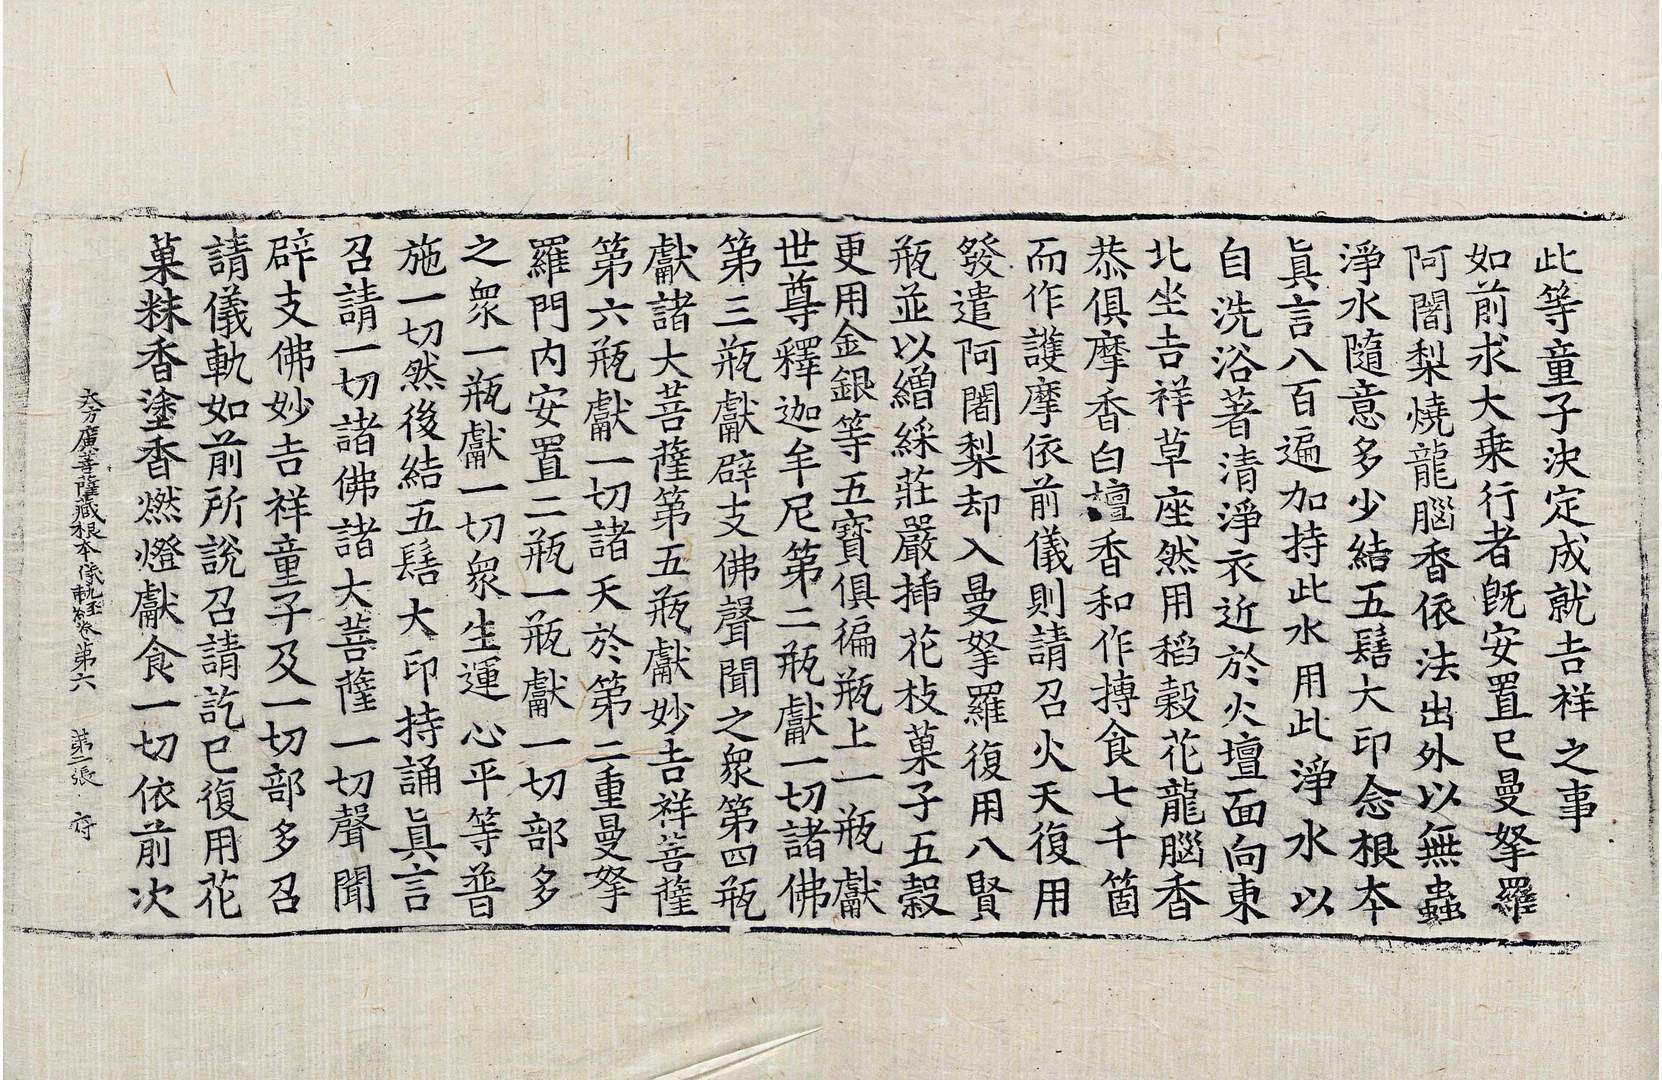 此等童子決定成就吉祥之事
如前求大乘行者旣安置已曼拏羅
阿闍梨燒龍腦香依法出外以無蟲
淨水隨意多少結五髻大印念根本
眞言八百遍加持此水用此淨水以
自洗浴著清淨衣近於火壇面向東
北坐吉祥草座然用稻糓花龍腦香
恭俱摩香白檀香和作摶食七千箇
而作護摩依前儀則請召火天復用
發遣阿闍梨却入曼拏羅復用八賢
瓶並以繒綵莊嚴揷花枝菓子五糓
更用金銀等五寶俱徧瓶上一瓶獻
世尊釋迦牟尼第二瓶獻一切諸佛
第三瓶獻辟支佛聲聞之衆第四瓶
獻諸大菩薩第五瓶獻妙吉祥菩薩
第六瓶獻一切諸天於第二重曼拏
羅門內安置二瓶一瓶獻一切部多
之衆一瓶獻一切衆生運心平等普
施一切然後結五髻大印持誦眞言
召請一切諸佛諸大菩薩一切聲聞
辟支佛妙吉祥童子及一切部多召
請儀軌如前所說召請訖已復用花
菓粖香塗香燃燈獻食一切依前次
大方廣菩薩藏根本儀軌經卷第六 第二張